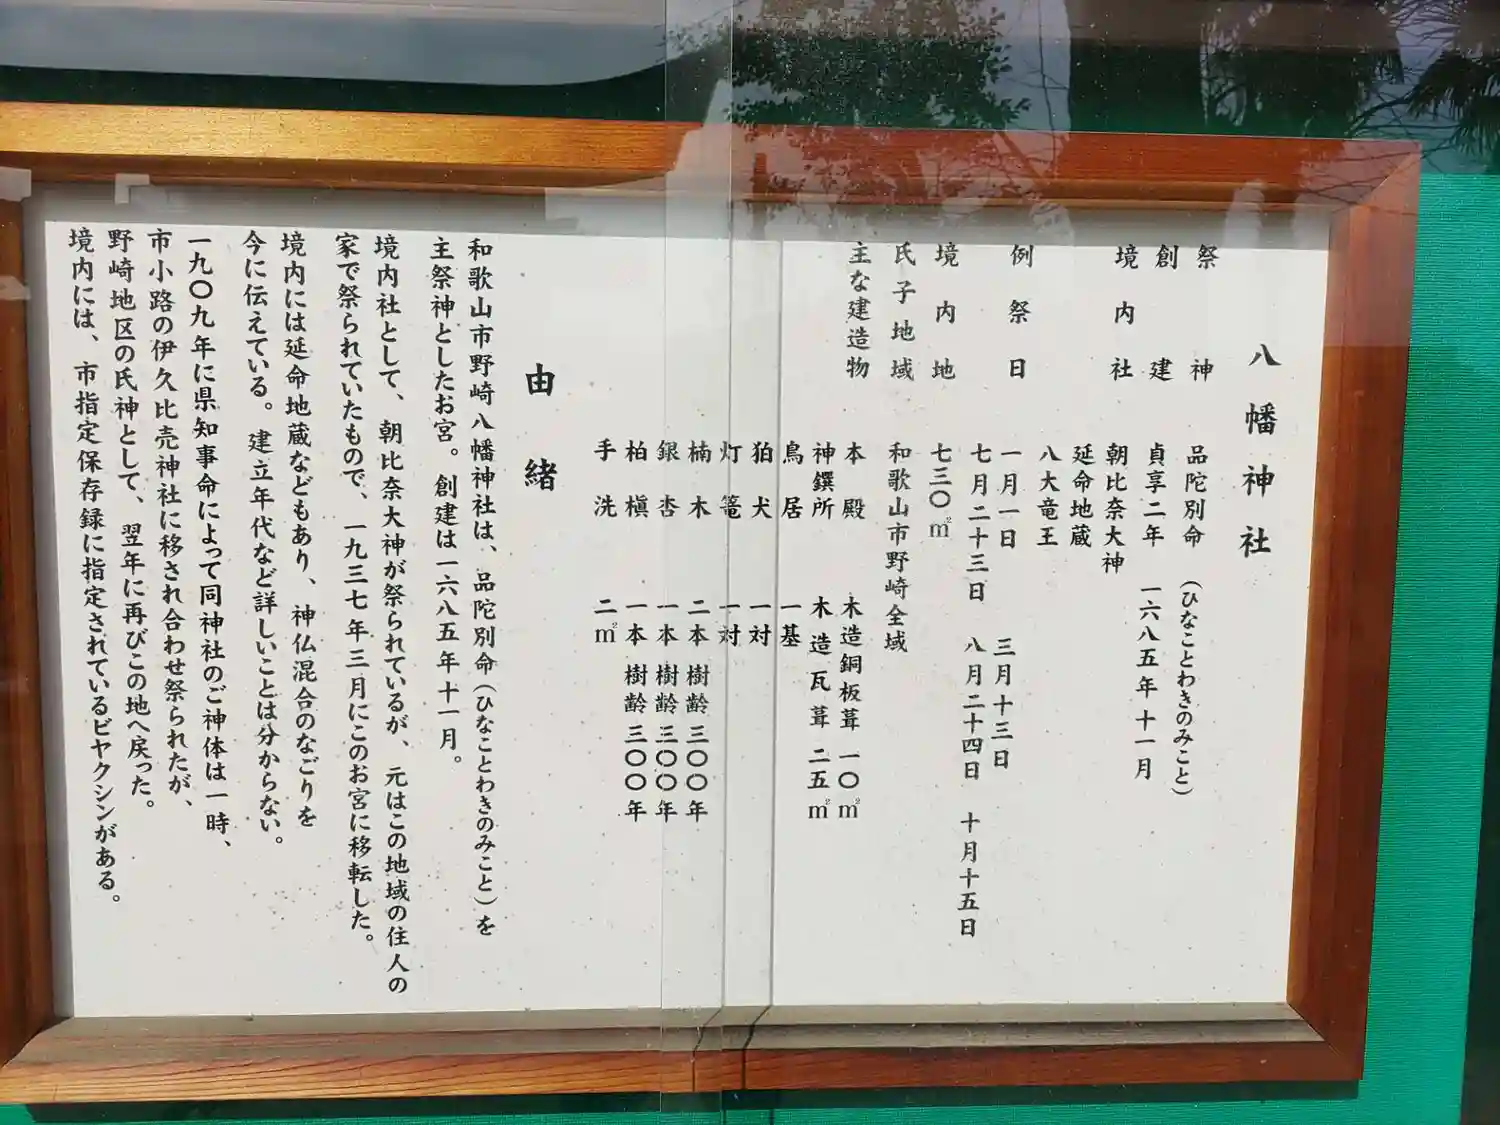 八幡神社
祭神 品陀別命 (ひなことわきのみこと)
創建 貞享二年 一六八五年十一月
境内社 朝比奈大神
延命地蔵
八大竜王
例祭日 一月一日 三月十三日
七月二十三日 八月二十四日 十月十五日
境内地 七三〇㎡
氏子地域 和歌山市野崎全域
主な建造物 本殿 木造銅板葺 一〇㎡
神饌所 木造瓦葺 二五㎡
鳥居 一基
狛犬 一対
灯篭 一対
楠木 二本 樹齢 三〇〇年
銀杏 一本 樹齢 三〇〇年
柏槇 一本 樹齢 三〇〇年
手洗 二㎡
由緒
和歌山市野崎八幡神社は、品陀別命(ひなことわきのみこと)を
主祭神としたお宮。創建は一六八五年十一月。
境内社として、朝比奈大神が祭られているが、元はこの地域の住人の
家で祭られていたもので、一九三七年三月にこのお宮に移転した。
境内には延命地蔵などもあり、神仏混合のなごりを
今に伝えている。建立年代など詳しいことは分からない。
一九〇九年に県知事命によって同神社のご神体は一時、
市小路の伊久比売神社に移され合わせ祭られたが、
野崎地区の氏神として、翌年に再びこの地へ戻った。
境内には、市指定保存録に指定されているビヤクシンがある。